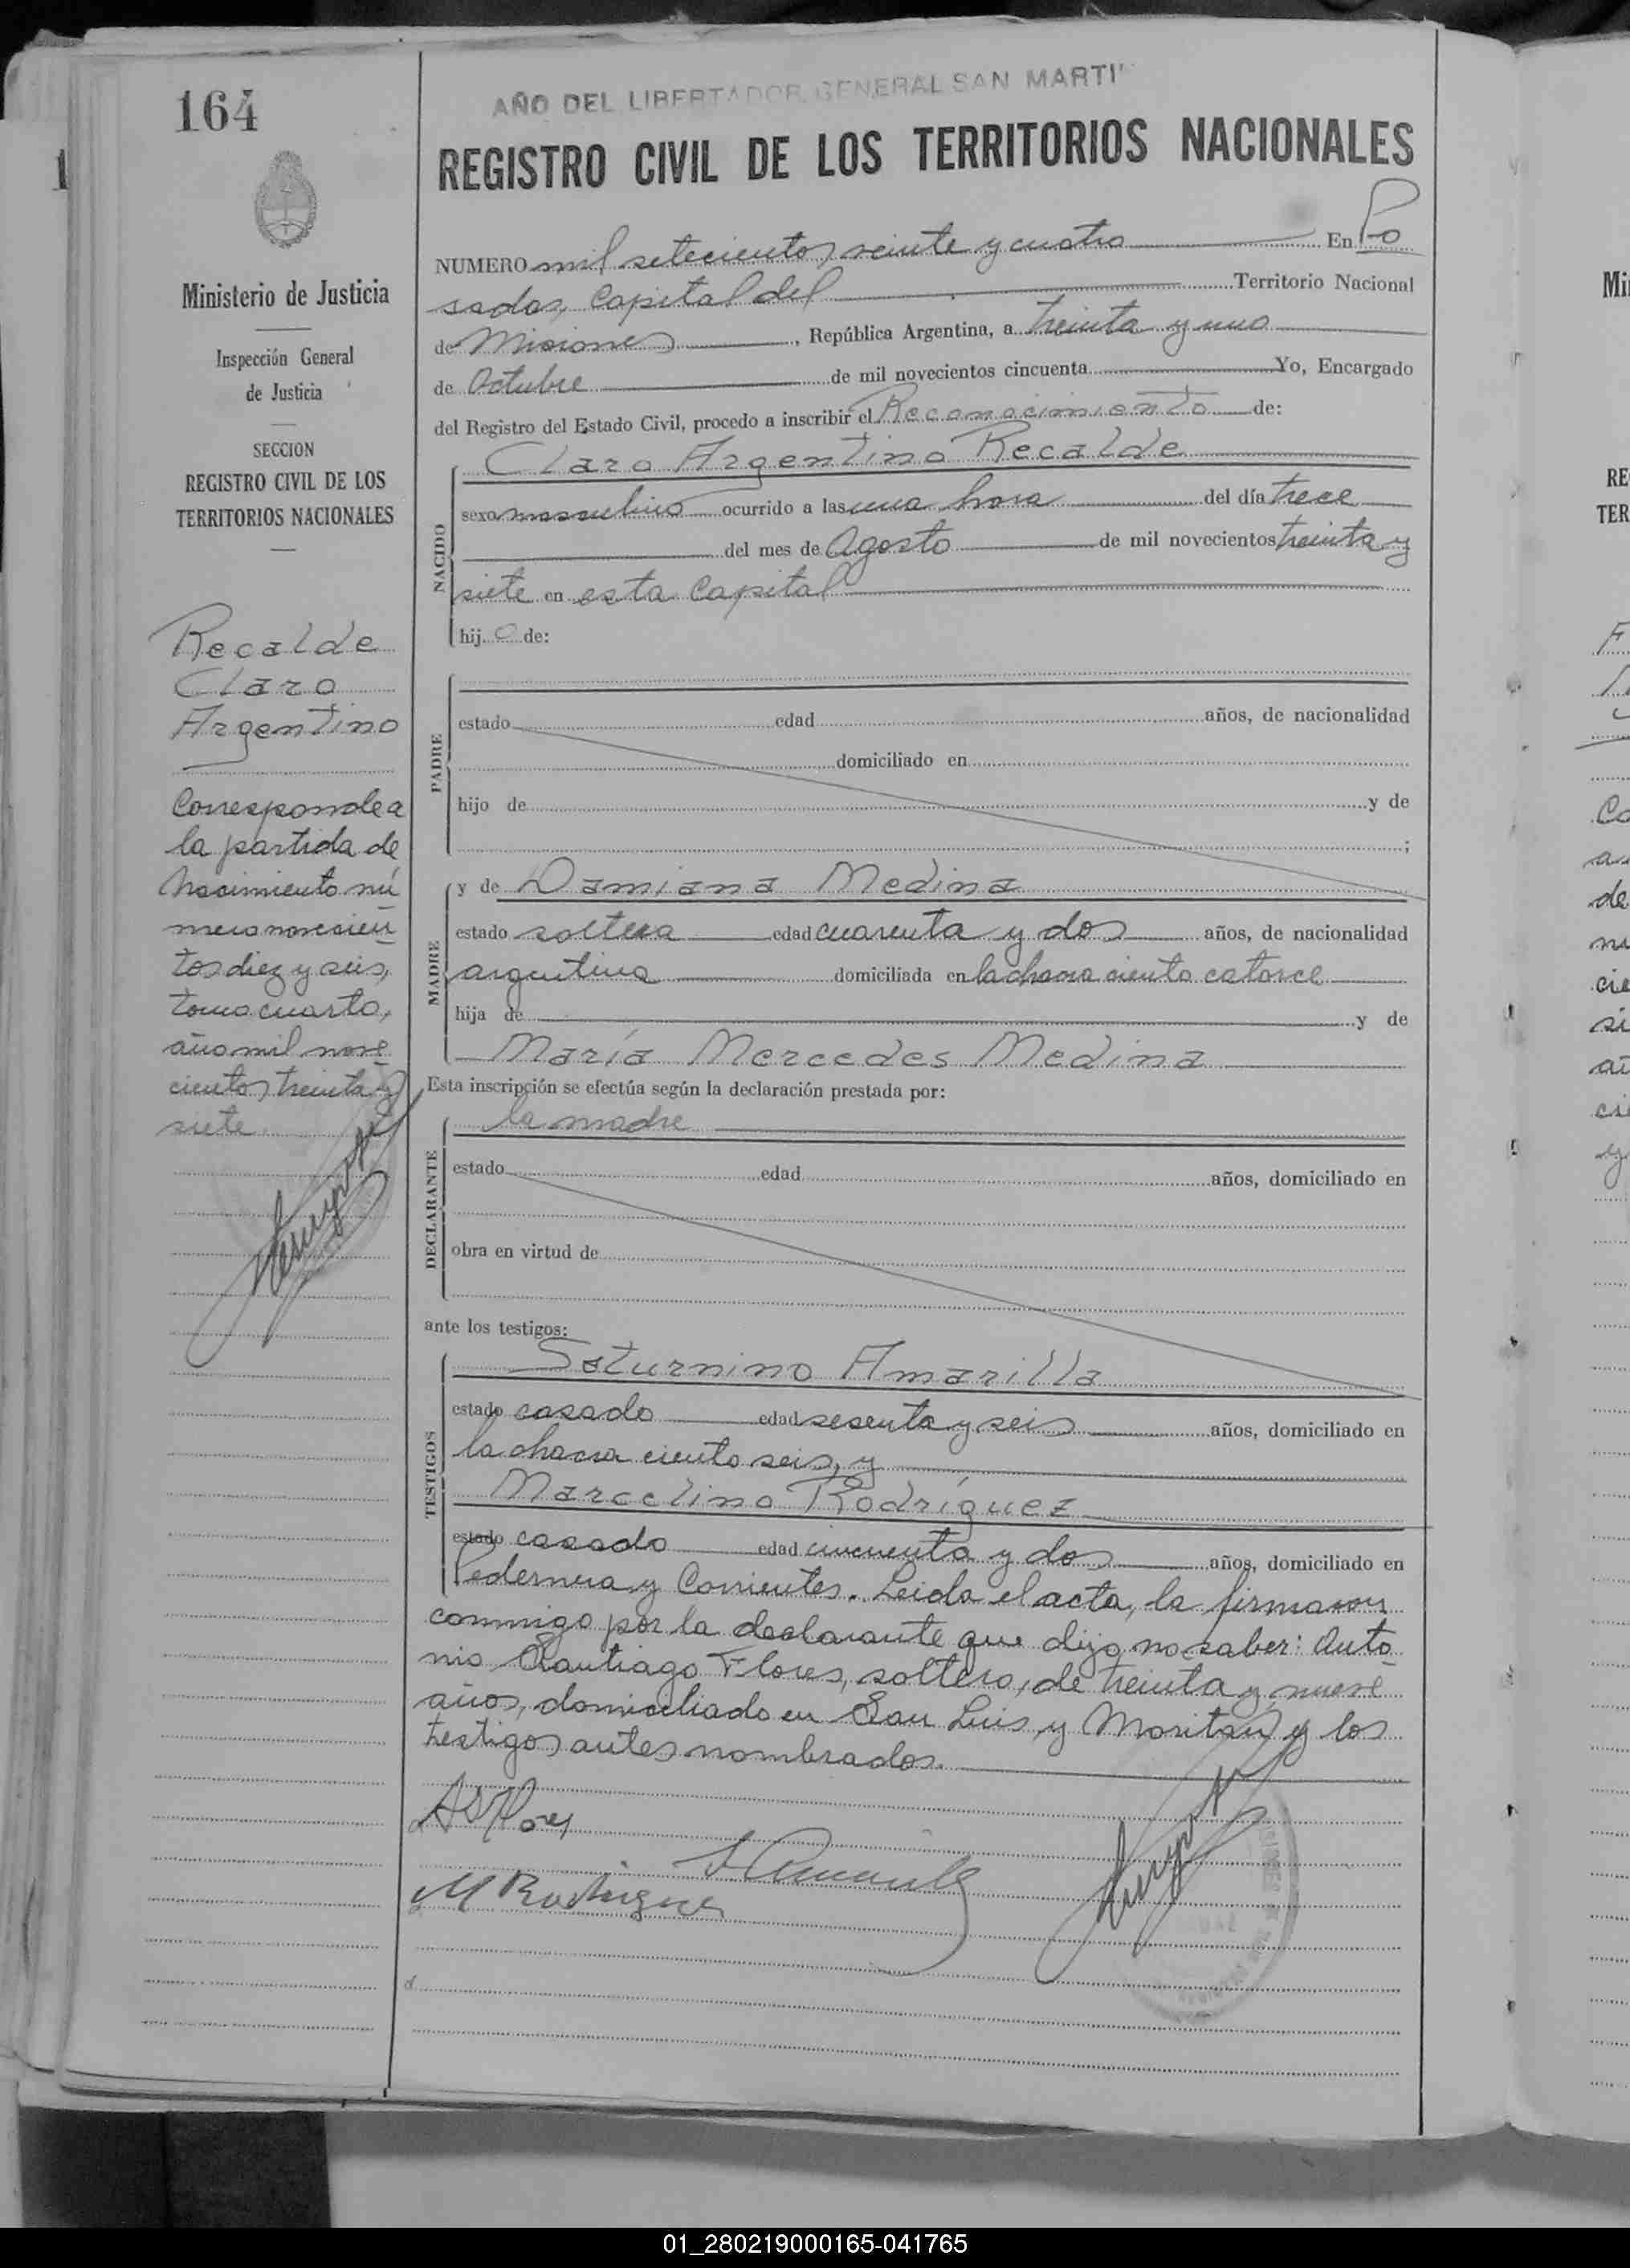 164
AÑO DEL LIBERTADOR GENERAL SAN MARTI
REGISTRO CIVIL DE LOS TERRITORIOS NACIONALES
Ministerio de Justicia
Inspección General
de Justicia
SECCION
REGISTRO CIVIL DE LOS
TERRITORIOS NACIONALES
Recalde
Claro
Argentino
Corresponde a
la partida de
Nacimiento nú
mero novecien
tos diez y seis,
tomo cuarto,
año mil nove
cientos treinta y
siete.
NUMERO mil setecientos veinte y cuatro En Po
sadas, Capital del Territorio Nacional
de Misiones, República Argentina, a treinta y uno
de Octubre de mil novecientos cincuenta Yo, Encargado
del Registro del Estado Civil, procedo a inscribir el Reconocimiento de:
NACIDO
Claro Argentino Recalde
sexo masculino ocurrido a las una hora del día trece
del mes de Agosto de mil novecientos treinta y
siete en esta Capital
hijo de:
PADRE
estado edad años, de nacionalidad
domiciliado en
hijo de y de
;
MADRE
y de Damiana Medina
estado soltera edad cuarenta y dos años, de nacionalidad
argentina domiciliada en la chacra ciento catorce
hija de y de
María Mercedes Medina
Esta inscripción se efectúa según la declaración prestada por:
DECLARANTE
la madre
estado edad años, domiciliado en
obra en virtud de
ante los testigos:
TESTIGOS
Saturnino Amarilla
estado casado edad sesenta y seis años, domiciliado en
la chacra ciento seis, y
Marcelino Rodríguez
estado casado edad cincuenta y dos años, domiciliado en
Pedernera y Corrientes. Leida el acta, la firmaron
conmigo por la declarante que dijo no saber: Anto
nio Santiago Flores, soltero, de treinta y nueve
años, domiciliado en San Luis y Moritan y los
testigos antes nombrados.
A S Flores
M Rodriguez
01_280219000165-041765